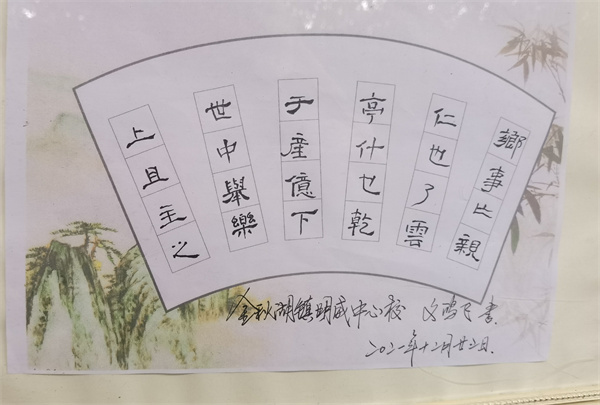 鄉事比親
仁也了雲
亭什乜乾
于產億下
世中舉樂
上且主之
金秋湖镇明威中心校 书
二〇二一年十二月廿二日